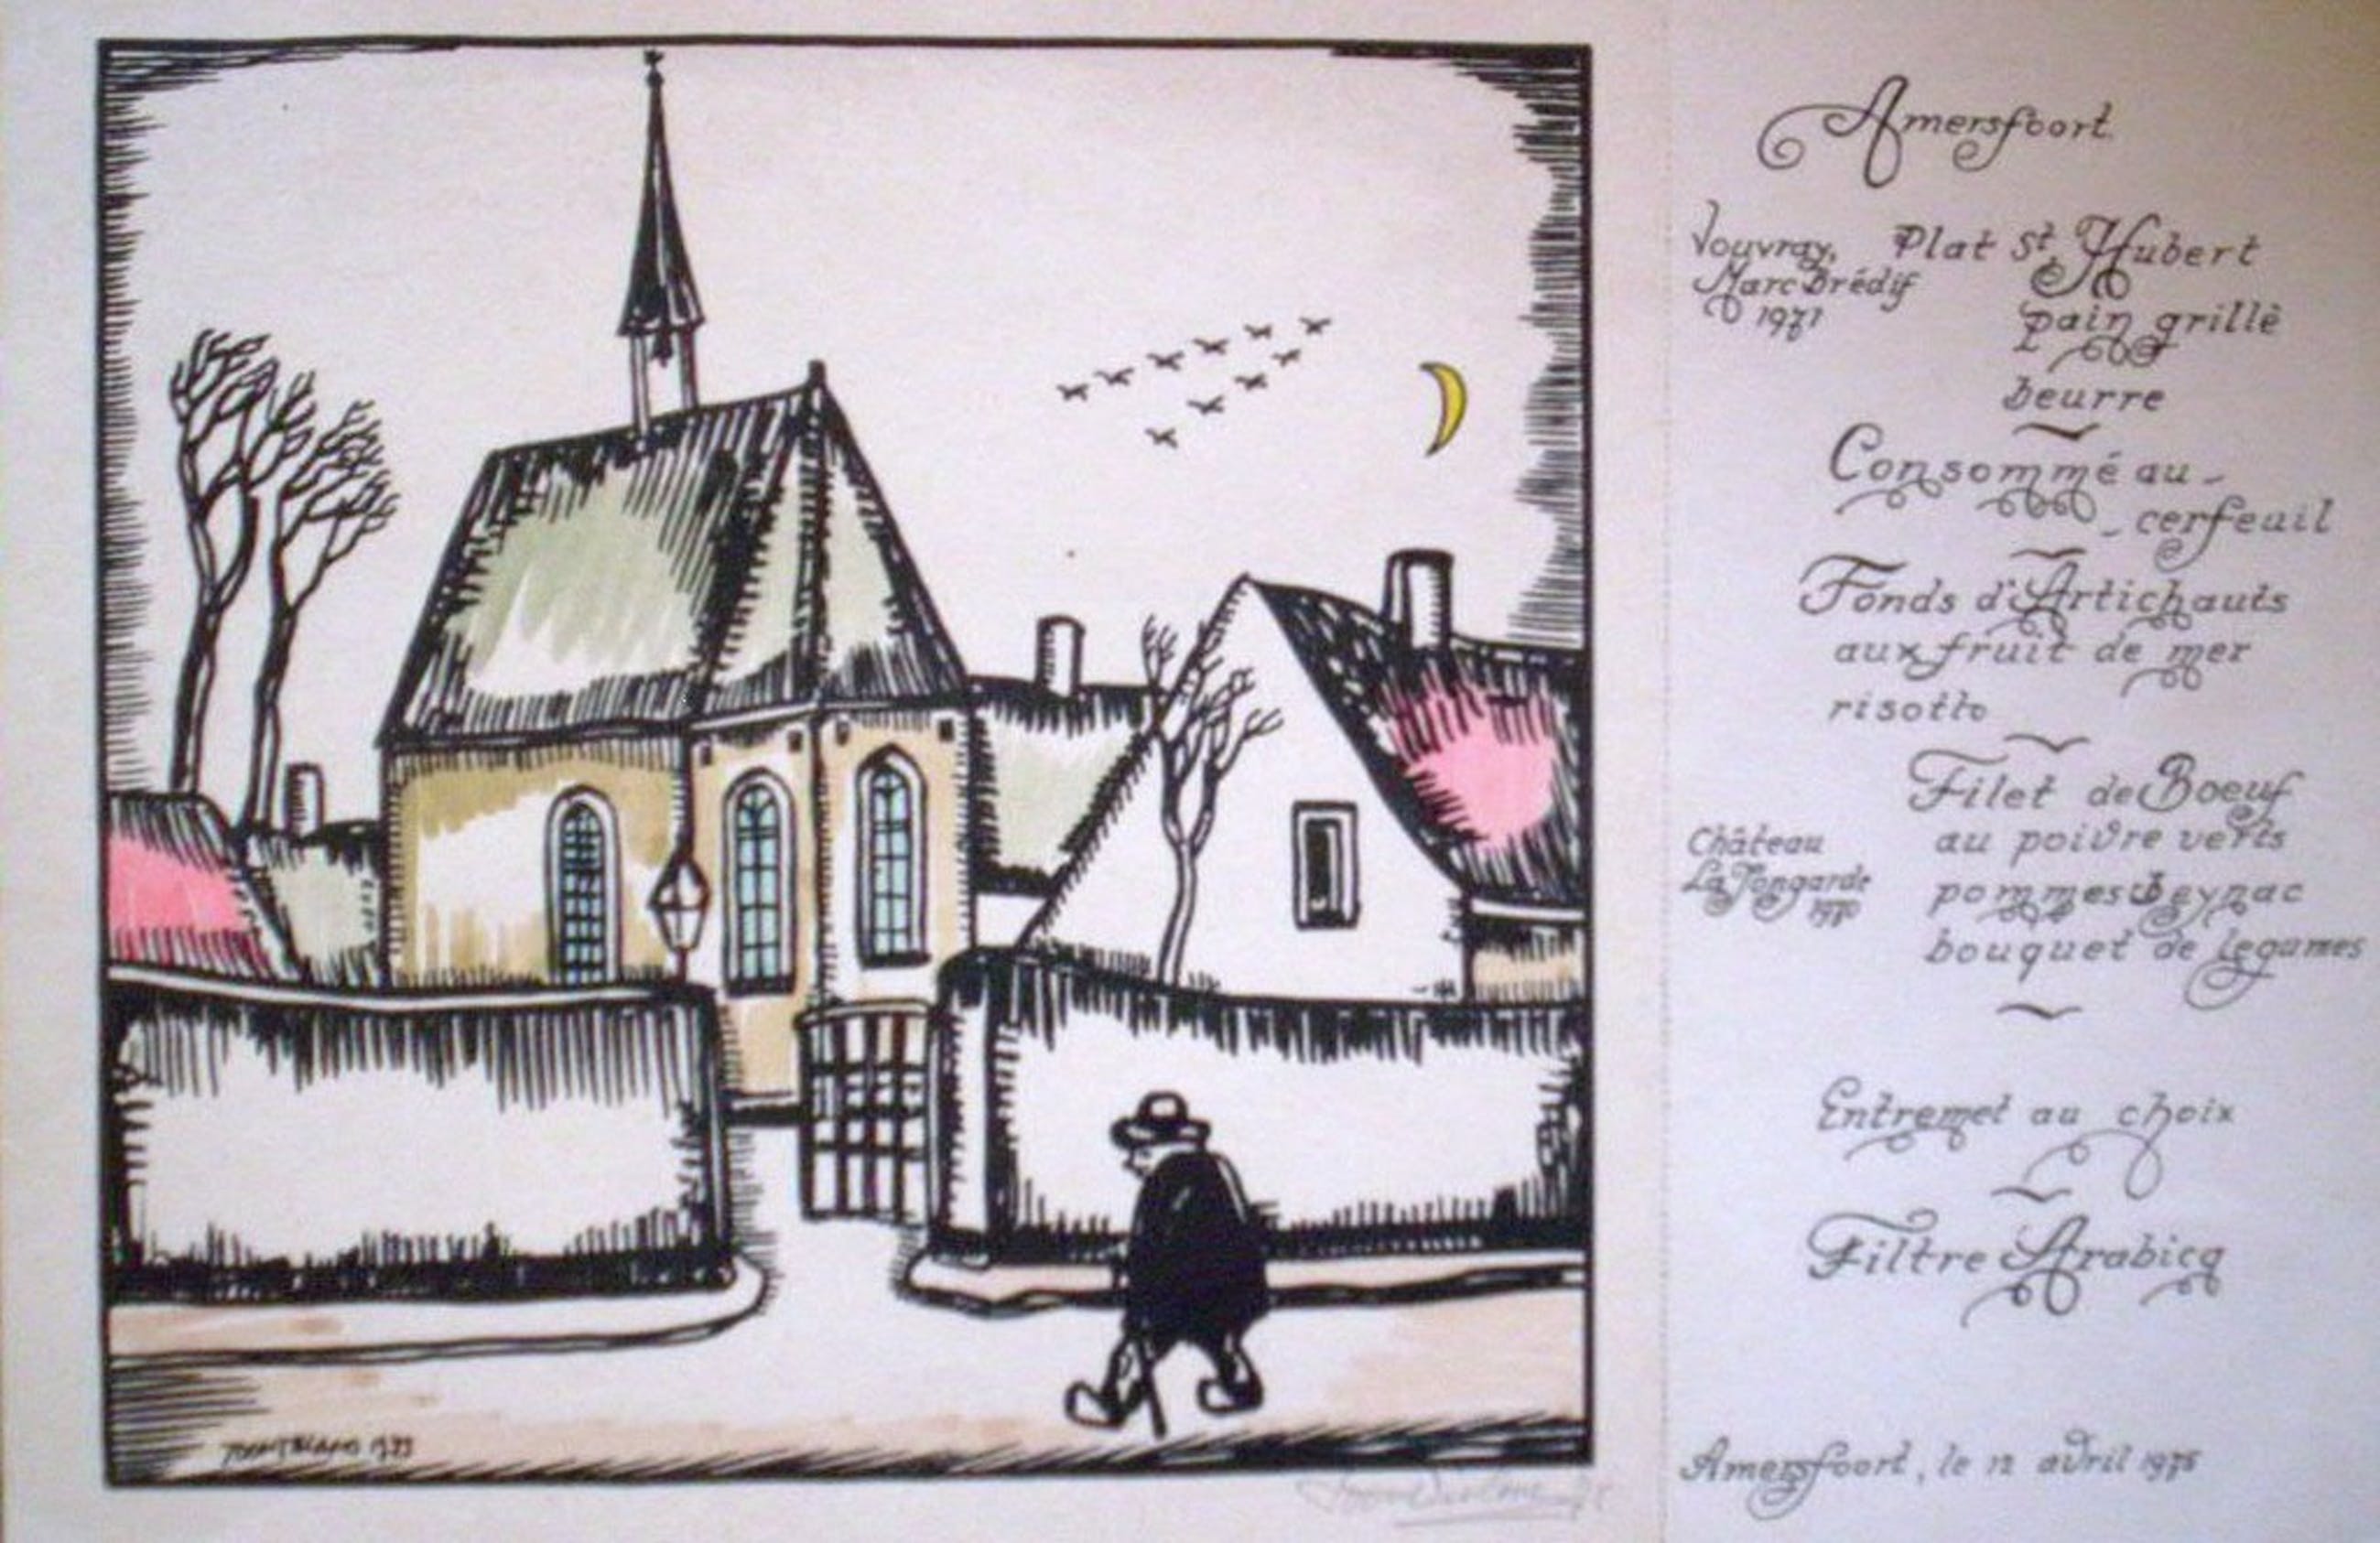 Amersfoort.
Vouvray,
Marc Brédif
1971
Plat St. Hubert
pain grillé
beurre
Consommé au-
-cerfeuil
Fonds d'Artichauts
aux fruit de mer
risotto
Filet de Boeuf
au poivre verts
pommes Beynac
bouquet de legumes
Château
La Tongarde
1970
Entremet au choix
Filtre Arabica
Amersfoort, le 12 avril 1975